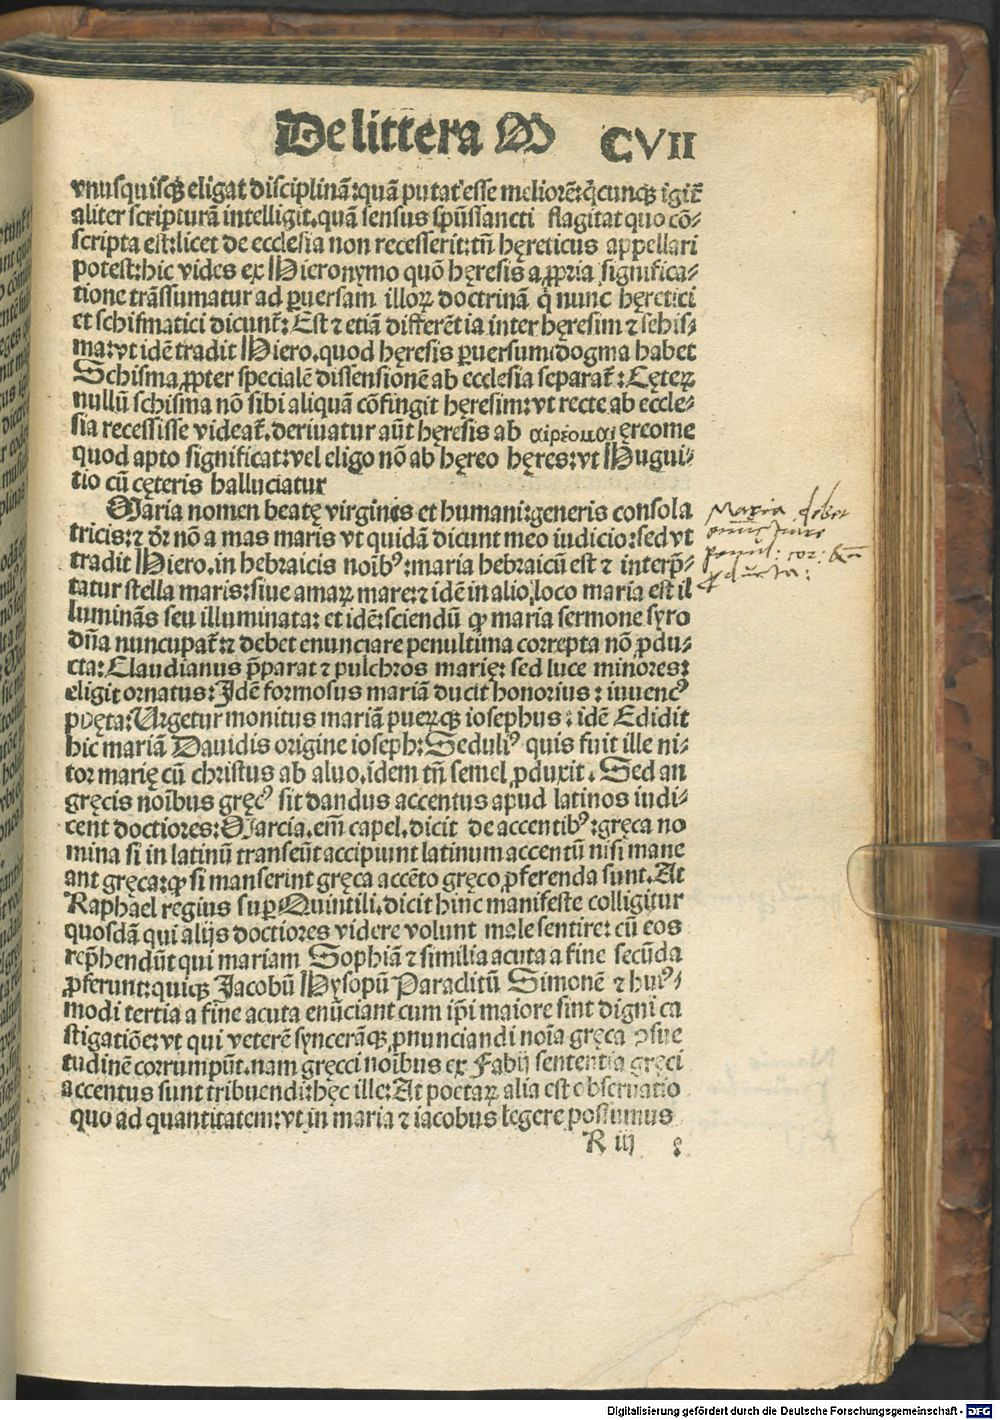 De littera M CVII
vnusquisqꝫ eligat disciplinā:quā putat esse meliorē:q̇cunqꝫ igit̄
aliter scripturā intelligit.quā sensus spūssancti flagitat quo cō⸗
scripta est:licet de ecclesia non recesserit:tn̄ hęreticus appellari
potest:hic vides ex Hieronymo quō hęresis a ꝓpria significa⸗
tione trāssumatur ad ꝑuersam illoꝝ doctrinā q̇ nunc hęretici
et schismatici dicunt̄: Est ⁊ etiā differēt ia inter hęresim ⁊ schis⸗
ma:vt idē tradit Hiero.quod hęresis ꝑuersum dogma habet
Schisma ꝓpter specialē dissensionē ab ecclesia separat̄: Cęteꝝ
nullū schisma nō sibi aliquā cōfingit hęresim:vt recte ab eccle⸗
sia recessisse videat̄.deriuatur aūt hęresis ab αιρεομαι ereome
quod apto significat:vel eligo nō ab hęreo hęres:vt Hugui⸗
tio cū cęteris halluciatur
Maria nomen beatę virginis et humani:generis consola
tricis:⁊ dr̄ nō a mas maris vt quidā dicunt meo iudicio:sed vt
tradit Hiero.in hebraicis noibꝰ:maria hebraicū est ⁊ interp̄⸗
tatur stella maris:siue amaꝝ mare:⁊ idē in alio loco maria est il
luminās seu illuminata: et idē:sciendū ꝙ maria sermone syro
dn̄a nuncupat̄:⁊ debet enunciare penultima correpta nō ꝓdu⸗
cta:Claudianus p̄parat ⁊ pulchros marię: sed luce minores:
eligit ornatus:Idē formosus mariā ducit honorius: iuuencꝰ
poęta:Urgetur monitus mariā pueꝝqꝫ iosephus: idē Edidit
hic mariā Dauidis origine ioseph:Seduliꝰ quis fuit ille ni⸗
tor marię cū christus ab aluo.idem tn̄ semel ꝓduxit. Sed an
gręcis noībus gręcꝰ sit dandus accentus apud latinos iudi⸗
cent doctiores:Marcia.em̄ capel.dicit de accentibꝰ:gręca no
mina si in latinū transeūt accipiunt latinum accentū nisi mane
ant gręca:ꝙ si manserint gręca accēto gręco ꝓferenda sunt.At
Raphael regius suꝑ Quintili.dicit hinc manifeste colligitur
quosdā qui alijs doctiores videre volunt male sentire: cū eos
rep̄hendūt qui mariam Sophiā ⁊ similia acuta a fine secūda
ꝓferunt:quiqꝫ Jacobū Hysopū Paraclitū Simonē ⁊ huiꝰ⸗
modi tertia a fine acuta enūciant cum ip̄i maiore sint digni ca
stigatiōe:vt qui veterē syncerāqꝫ ꝓnunciandi noīa gręca ꝯsue
tudinē corrumpūt.nam gręcci noībus ex Fabij sententia gręci
accentus sunt tribuendi:hęc ille:At poetaꝝ alia est obseruatio
quo ad quantitatem:vt in maria ⁊ iacobus legere possumus
R iij
Maria debet
penul: cor:
ꝓducta:
Digitalisierung gefördert durch die Deutsche Forschungsgemeinschaft - DFG